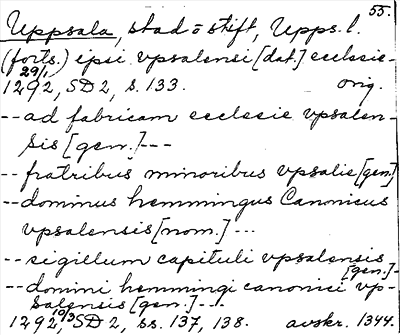 55.
Uppsala, stad o stift, Upps. l.
(forts.) ipsi vpsalensi [dat.] ecclesie -
29/1 1292, SD 2, s. 133. orig.
-- ad fabricam ecclesie vpsalen-
sis [gen.] ---
-- fratribus minoribus vpsalie [gen.]
-- dominus hemmingus Canonicus
vpsalensis [nom.] ---
-- sigillum capituli vpsalensis [gen.] -
-- domini hemmingi canonici vp-
salensis [gen.] --.
19/3 1292, SD 2, ss. 137, 138. avskr. 1344.